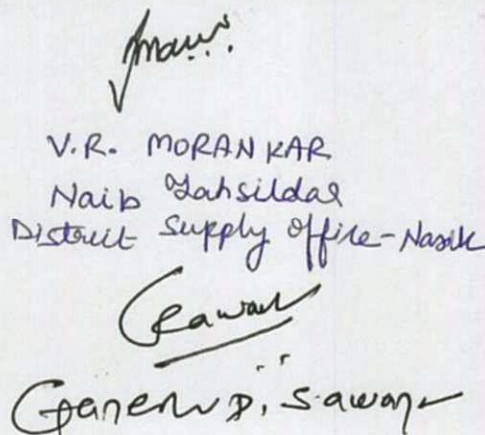 V.R. MORANKAR
Naib Tahsildar
District Supply Office-Nasik
Ganesh D. Sawant